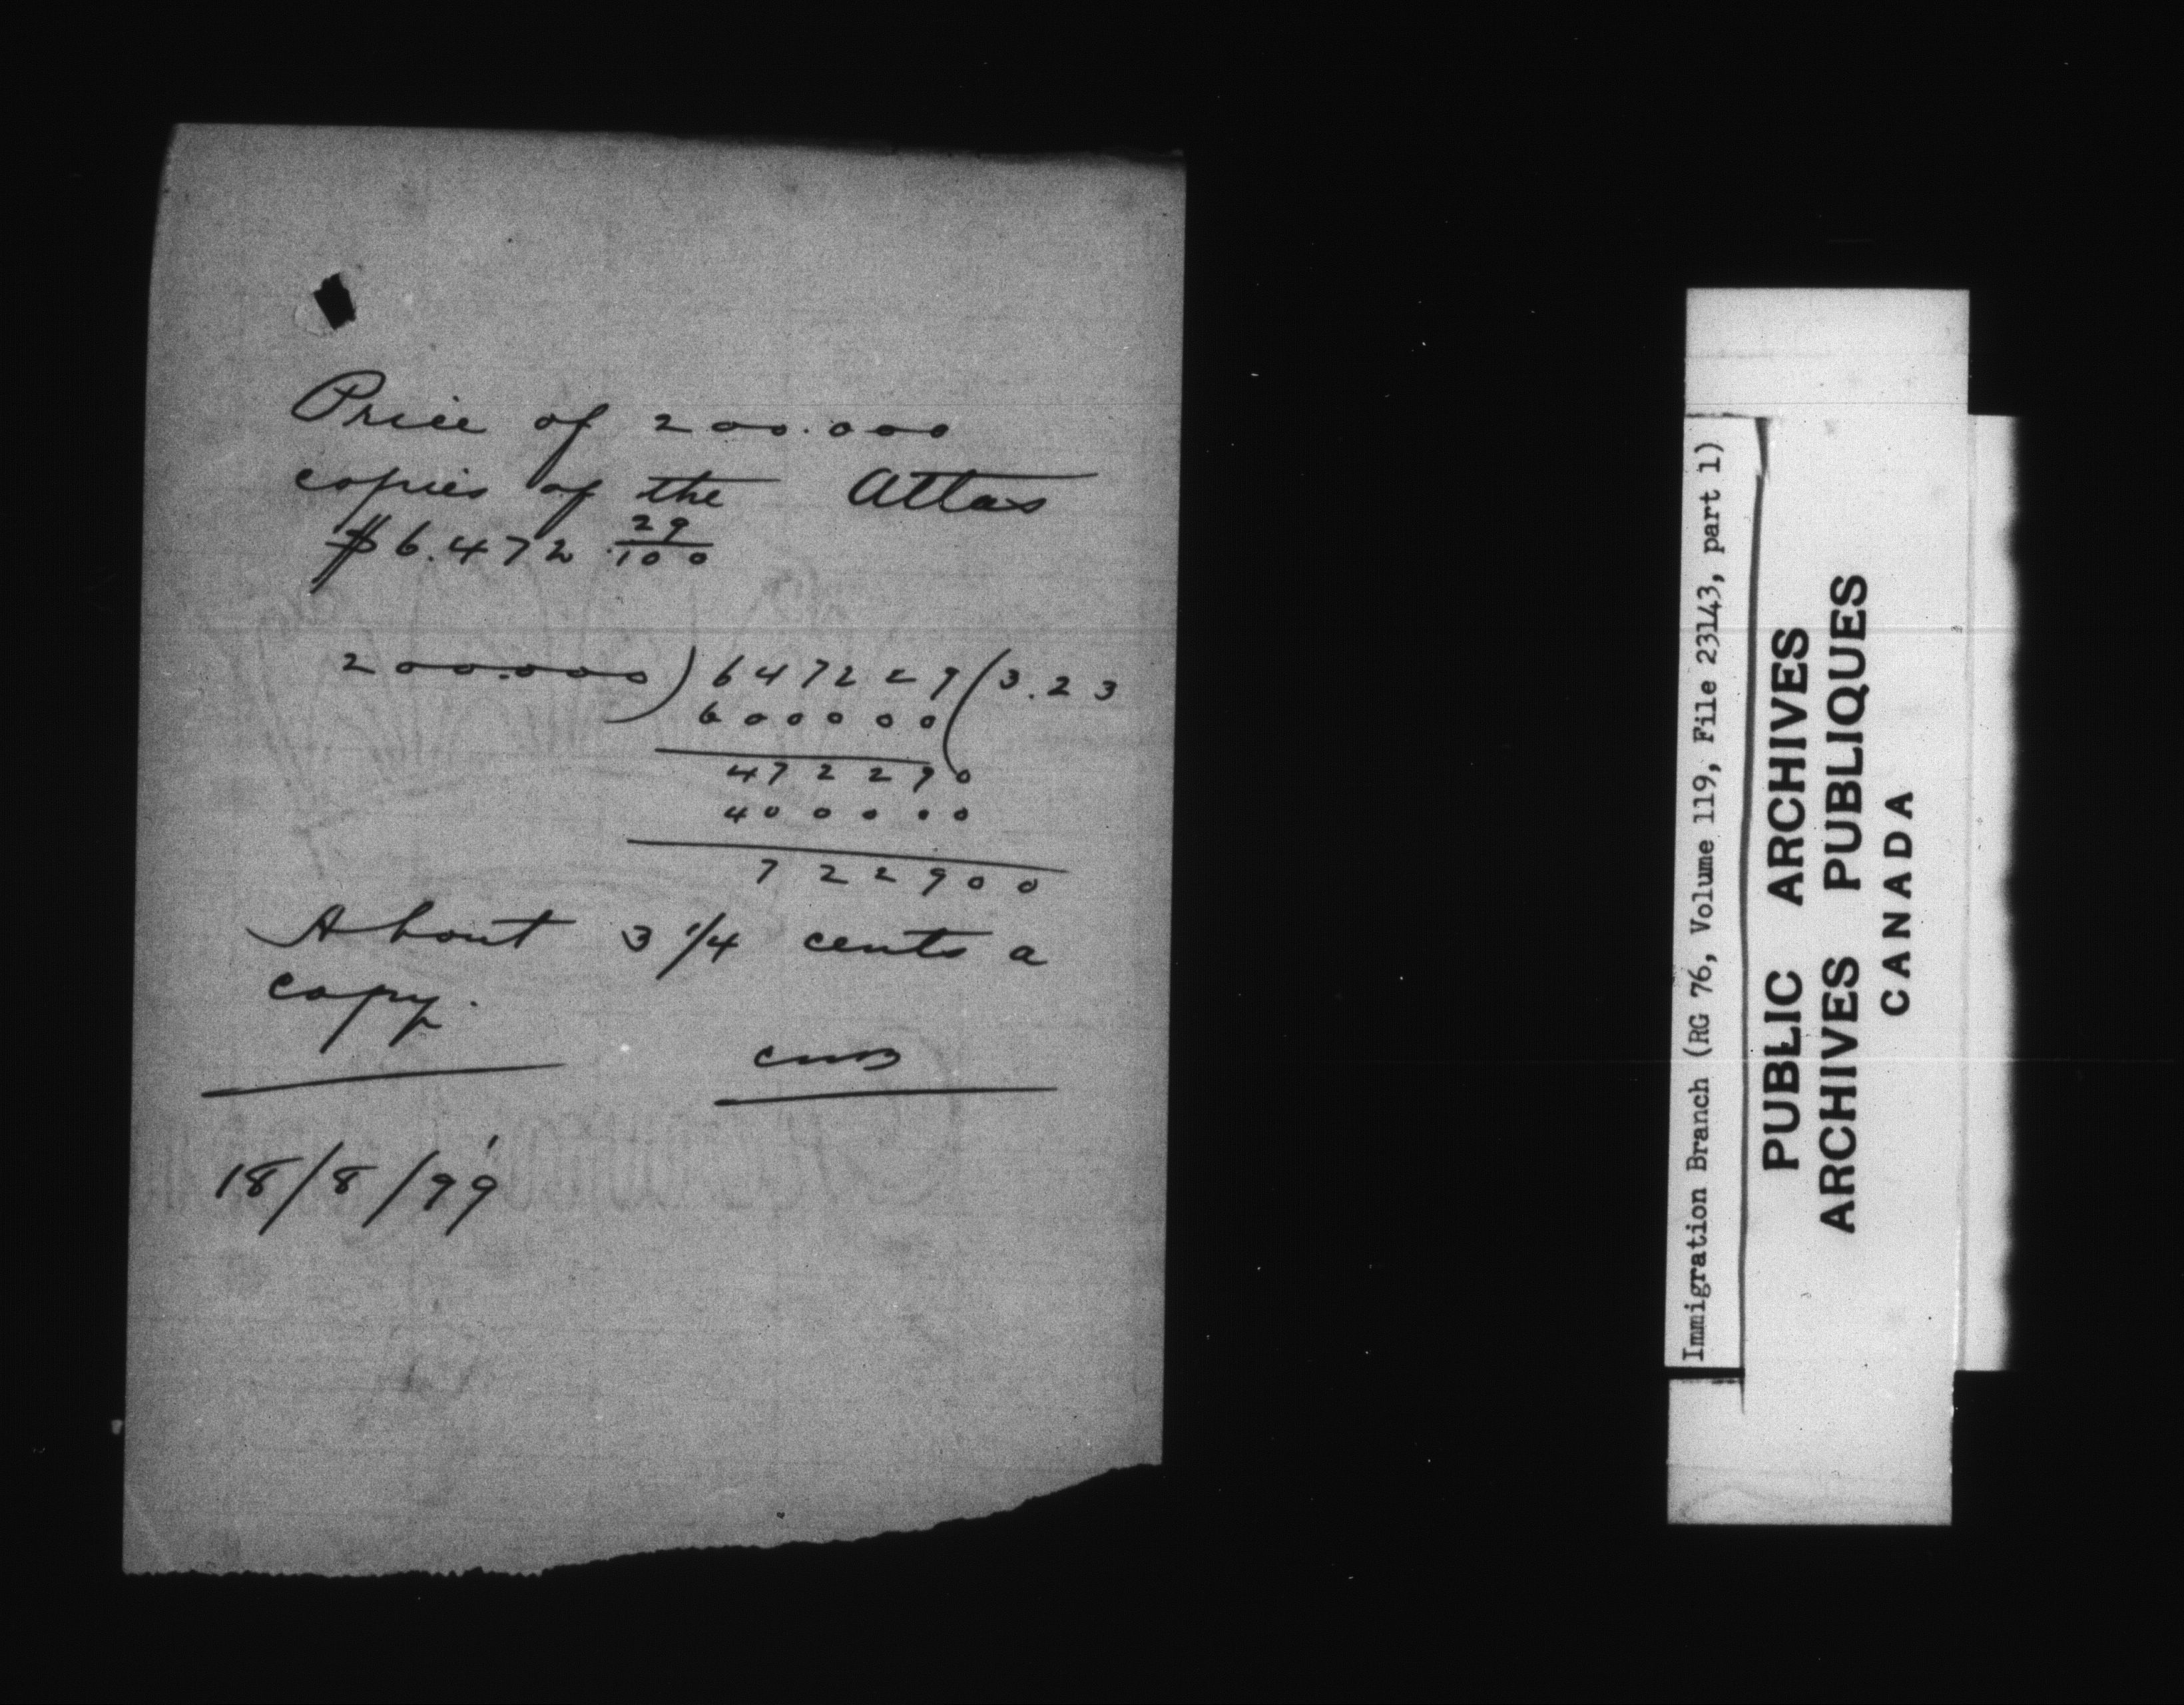 Price of 200.000
copies of the Atlas
$6.472 29/100
200.000 ) 647229 ( 3.23
600000
472290
400000
722900
About 3 1/4 cents a
copy.
18/8/99
Immigration Branch (RG 76, Volume 119, File 23143, part 1)
PUBLIC ARCHIVES
ARCHIVES PUBLIQUES
CANADA